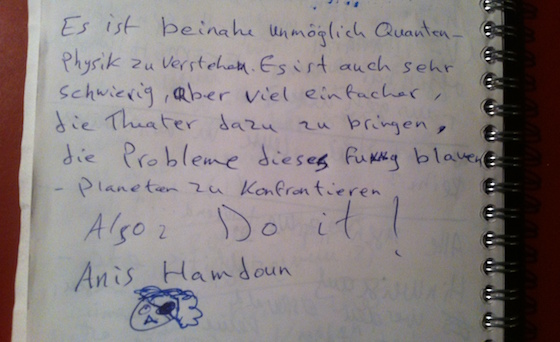 Es ist beinahe unmöglich Quanten-
Physik zu verstehen. Es ist auch sehr
schwierig, aber viel einfacher,
die Theater dazu zu bringen,
die Probleme dieses fu**g blauen
- Planeten zu konfrontieren
Also: Do it!
Anis Hamdoun